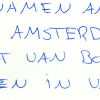 NAMEN A
AMSTERD
T VAN BO
EN IN U